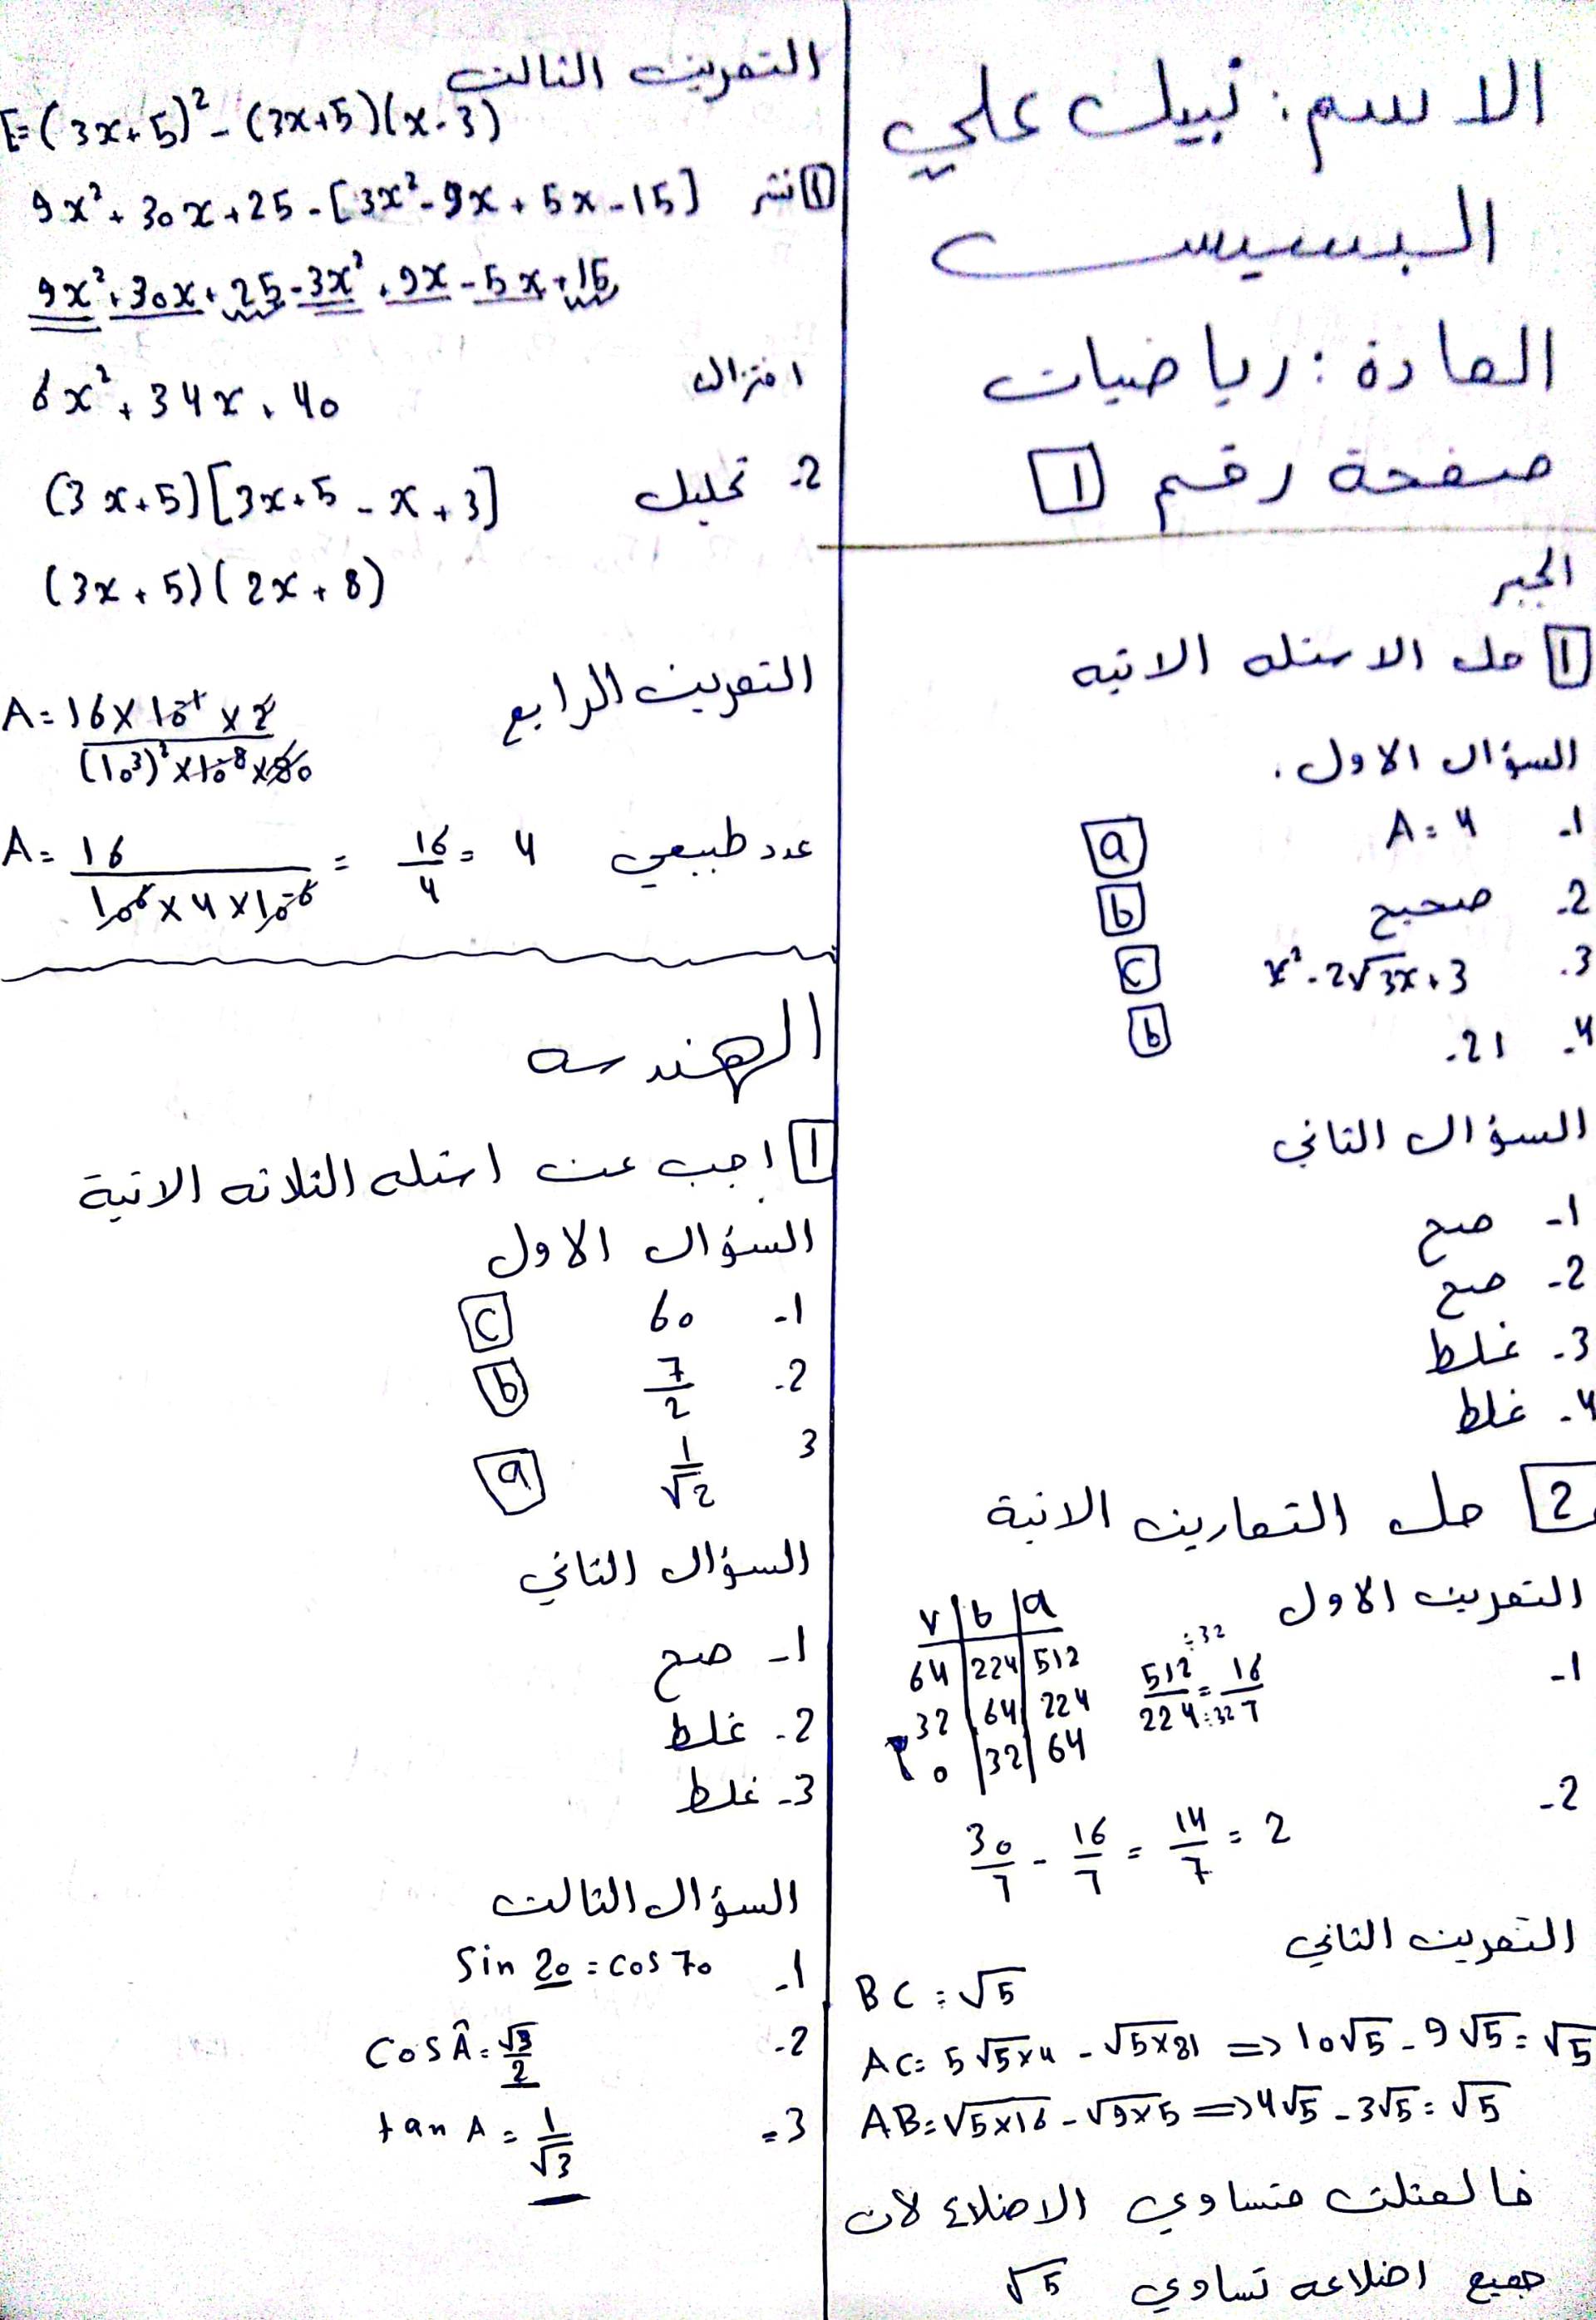 الاسم: نبيل علي
البسيس
المادة: رياضيات
صفحة رقم 1
الجبر
1 حل الاسئله الاتيه
السؤال الاول.
1- A = 4 a
2- صحيح b
3. x² - 2√3x + 3 c
4- -21 b
السؤال الثاني
1- صح
2- صح
3- غلط
4- غلط
2 حل التمارين الاتية
التمرين الاول
1-
r | b | a
64 | 224 | 512
32 | 64 | 224
0 | 32 | 64
512/224 = 16/7
:32
:32
2-
30/7 - 16/7 = 14/7 = 2
التمرين الثاني
BC = √5
AC = 5√5×4 - √5×81 => 10√5 - 9√5 = √5
AB = √5×16 - √9×5 => 4√5 - 3√5 = √5
فالمثلث متساوي الاضلاع لأن
جميع اضلاعه تساوي √5
التمرين الثالث
E = (3x+5)² - (3x+5)(x-3)
1 نشر 9x² + 30x + 25 - [3x² - 9x + 5x - 15]
9x² + 30x + 25 - 3x² + 9x - 5x + 15
اختزال 6x² + 34x + 40
2- تحليل (3x+5)[3x+5 - x + 3]
(3x+5)(2x+8)
التمرين الرابع
A = 16 × 10¹ × 2 / (10³)² × 10⁻⁸ × 80
A = 16 / 10⁶ × 4 × 10⁻⁶ = 16/4 = 4 عدد طبيعي
الهندسه
1 اجب عن اسئله الثلاثه الاتية
السؤال الاول
1- 60 c
2- 7/2 b
3 1/√2 a
السؤال الثاني
1- صح
2- غلط
3- غلط
السؤال الثالث
1- Sin 20 = cos 70
2- Cos Â = √3/2
3- tan A = 1/√3